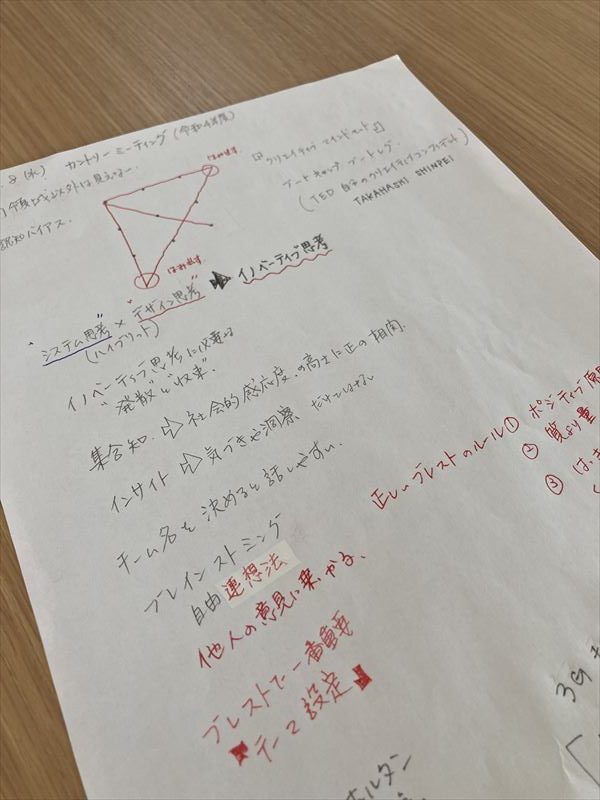 8 (水) カントリーミーティング (令和4年度)
見えない。
認知バイアス.
はみ出す
はみ出す
クリエイティブ マインドセット
アートキャンプ、ブートレグ.
(TED 自分のクリエイティブコンフィデント)
TAKAHASHI SHINPEI
"システム思考" × "デザイン思考" ➡ イノベーティブ思考
(ハイブリット)
イノベーティブ思考に必要な
"発散"と"収束".
集合知. ⇨ 社会的感応度.の高さに正の相関.
インサイト ⇨ 気づきや洞察 だけではない
チーム名を決めると話しやすい.
ブレインストミング
自由連想法
他人の意見に乗かる、
ブレストで一番重要
テーマ設定
正しいブレストのルール ① ポジティブ
② 質より量
③
ホルダン